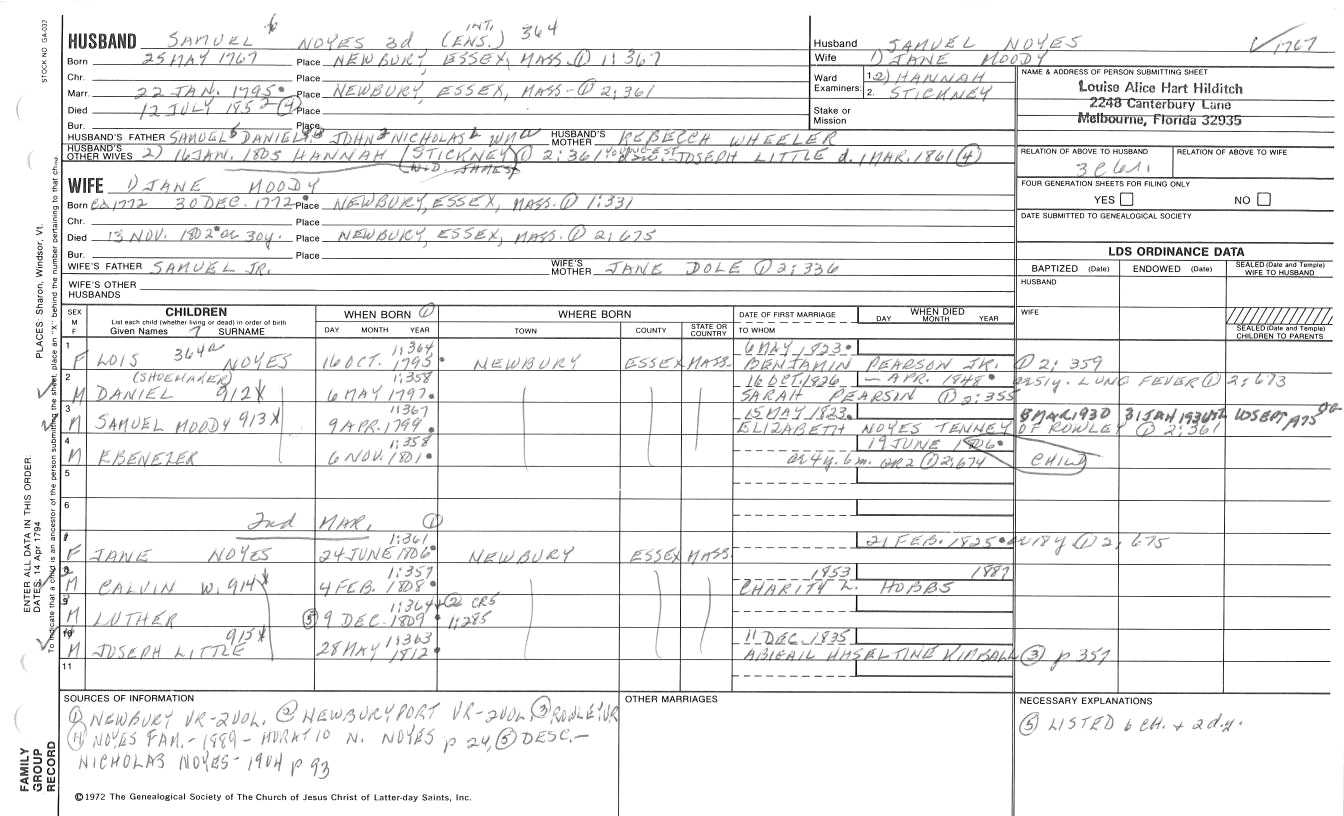 STOCK NO. GA-037
HUSBAND SAMUEL 6 NOYES 3d (ENS.) INT. 364
Born 25 MAY 1767 Place NEWBURY, ESSEX, MASS. ① 1:367
Chr. Place
Marr. 22 JAN. 1795 Place NEWBURY, ESSEX, MASS- ① 2:361
Died 12 JULY 1852 (4) Place
Bur. Place
HUSBAND'S FATHER SAMUEL DANIEL JOHN NICHOLAS WM HUSBAND'S MOTHER REBECCA WHEELER
HUSBAND'S OTHER WIVES 2) 16 JAN. 1805 HANNAH (STICKNEY) ① 2:361 YOUNGEST JOSEPH LITTLE d. 1 MAR. 1861 (4)
(WID. JAMES)
Husband SAMUEL NOYES 1767
Wife 1) JANE MOODY
Ward Examiners: 1. 2) HANNAH
2. STICKNEY
Stake or Mission
NAME & ADDRESS OF PERSON SUBMITTING SHEET
Louise Alice Hart Hilditch
2248 Canterbury Lane
Melbourne, Florida 32935
RELATION OF ABOVE TO HUSBAND RELATION OF ABOVE TO WIFE
FOUR GENERATION SHEETS FOR FILING ONLY
YES NO
DATE SUBMITTED TO GENEALOGICAL SOCIETY
WIFE 1) JANE MOODY
Born ca 1772 30 DEC. 1772 Place NEWBURY, ESSEX, MASS. ① 1:331
Chr. Place
Died 13 NOV. 1802 ae 30y. Place NEWBURY, ESSEX, MASS. ① 2:675
Bur. Place
WIFE'S FATHER SAMUEL JR. WIFE'S MOTHER JANE DOLE ① 2:336
WIFE'S OTHER HUSBANDS
LDS ORDINANCE DATA
BAPTIZED (Date) ENDOWED (Date) SEALED (Date and Temple) WIFE TO HUSBAND
HUSBAND
WIFE
SEALED (Date and Temple) CHILDREN TO PARENTS
SEX M F CHILDREN List each child (whether living or dead) in order of birth Given Names SURNAME
WHEN BORN ① DAY MONTH YEAR
WHERE BORN TOWN COUNTY STATE OR COUNTRY
DATE OF FIRST MARRIAGE TO WHOM
WHEN DIED DAY MONTH YEAR
1 F LOIS 364a NOYES 16 OCT. 1795 1:364 NEWBURY ESSEX MASS. 6 MAY 1823
BENJAMIN PEARSON JR. ① 2:359
2 M (SHOEMAKER) DANIEL 912X 6 MAY 1797 1:358 16 OCT. 1826 — APR. 1848 ae 51y. LUNG FEVER ① 2:673
SARAH PEARSIN ① 2:355
3 M SAMUEL MOODY 913X 9 APR. 1799 1:367 15 MAY 1823 8 MAR 1930
ELIZABETH NOYES TENNEY OF ROWLEY ① 2:361
4 M EBENEZER 6 NOV. 1801 1:358 19 JUNE 1806
ae 4y. 6m. GR2 ① 2:674 CHILD
5
6 2nd MAR. ①
F JANE NOYES 24 JUNE 1806 1:361 NEWBURY ESSEX MASS. 21 FEB. 1825 ae 18y ① 2:675
M CALVIN W. 914X 4 FEB. 1808 1:357 1853 1887
CHARITY L. HOBBS
M LUTHER ⑤ 9 DEC. 1809 1:364 + ② CR5 1:285
M JOSEPH LITTLE 915X 28 MAY 1812 1:363 11 DEC. 1835
ABIGAIL HASELTINE KIMBALL ③ p 357
11
SOURCES OF INFORMATION
① NEWBURY VR-2VOL. ② NEWBURYPORT VR-2VOL ③ ROWLEY VR
④ NOYES FAM.- 1889 - HORATIO N. NOYES p 24, ⑤ DESC.-
NICHOLAS NOYES - 1904 p 93
OTHER MARRIAGES
NECESSARY EXPLANATIONS
⑤ LISTED 6 CH. + 2 d.y.
©1972 The Genealogical Society of The Church of Jesus Christ of Latter-day Saints, Inc.
ENTER ALL DATA IN THIS ORDER
DATES: 14 Apr 1794
PLACES: Sharon, Windsor, Vt.
To indicate that a child is an ancestor of the person submitting the sheet, place an "X" behind the number pertaining to that child.
FAMILY GROUP RECORD